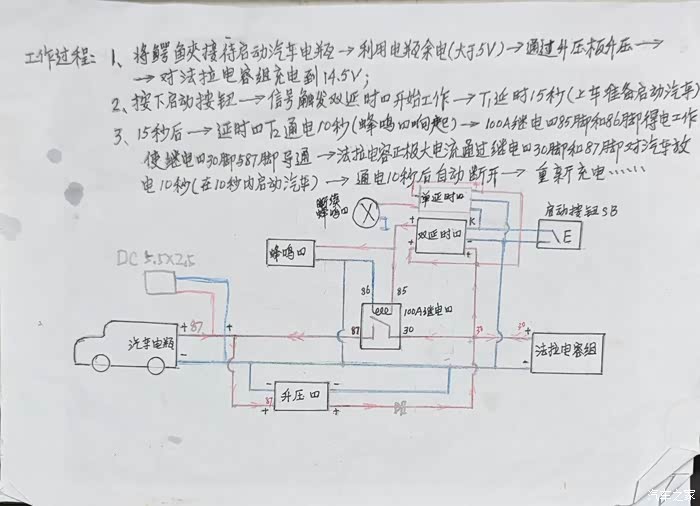 工作过程: 1、将鳄鱼夹接待启动汽车电瓶→利用电瓶余电(大于5V)→通过升压板升压→
→对法拉电容组充电到14.5V;
2、按下启动按钮→信号触发双延时四开始工作→T1延时15秒(上车准备启动汽车)
3、15秒后→延时四T2通电10秒(蜂鸣四响起)→100A继电四85脚和86脚得电工作
使继电四30脚与87脚导通→法拉电容正极大电流通过继电四30脚和87脚对汽车放
电10秒(在10秒内启动汽车)→通电10秒后自动断开→重新充电……
蜂鸣四
单延时四
启动按钮SB
K
双延时四
E
蜂鸣四
DC 5.5×2.5
86
85
100A继电四
87
30
+ 87
+
30
30
+
汽车电瓶
法拉电容组
-
-
升压四
-
-
87
+
+
汽车之家